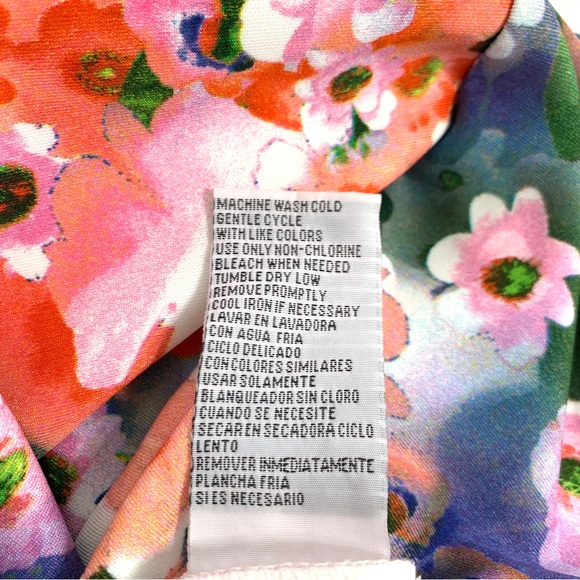 MACHINE WASH COLD
GENTLE CYCLE
WITH LIKE COLORS
USE ONLY NON-CHLORINE
BLEACH WHEN NEEDED
TUMBLE DRY LOW
REMOVE PROMPTLY
COOL IRON IF NECESSARY
LAVAR EN LAVADORA
CON AGUA FRIA
CICLO DELICADO
CON COLORES SIMILARES
USAR SOLAMENTE
BLANQUEADOR SIN CLORO
CUANDO SE NECESITE
SECAR EN SECADORA CICLO
LENTO
REMOVER INMEDIATAMENTE
PLANCHA FRIA
SI ES NECESARIO